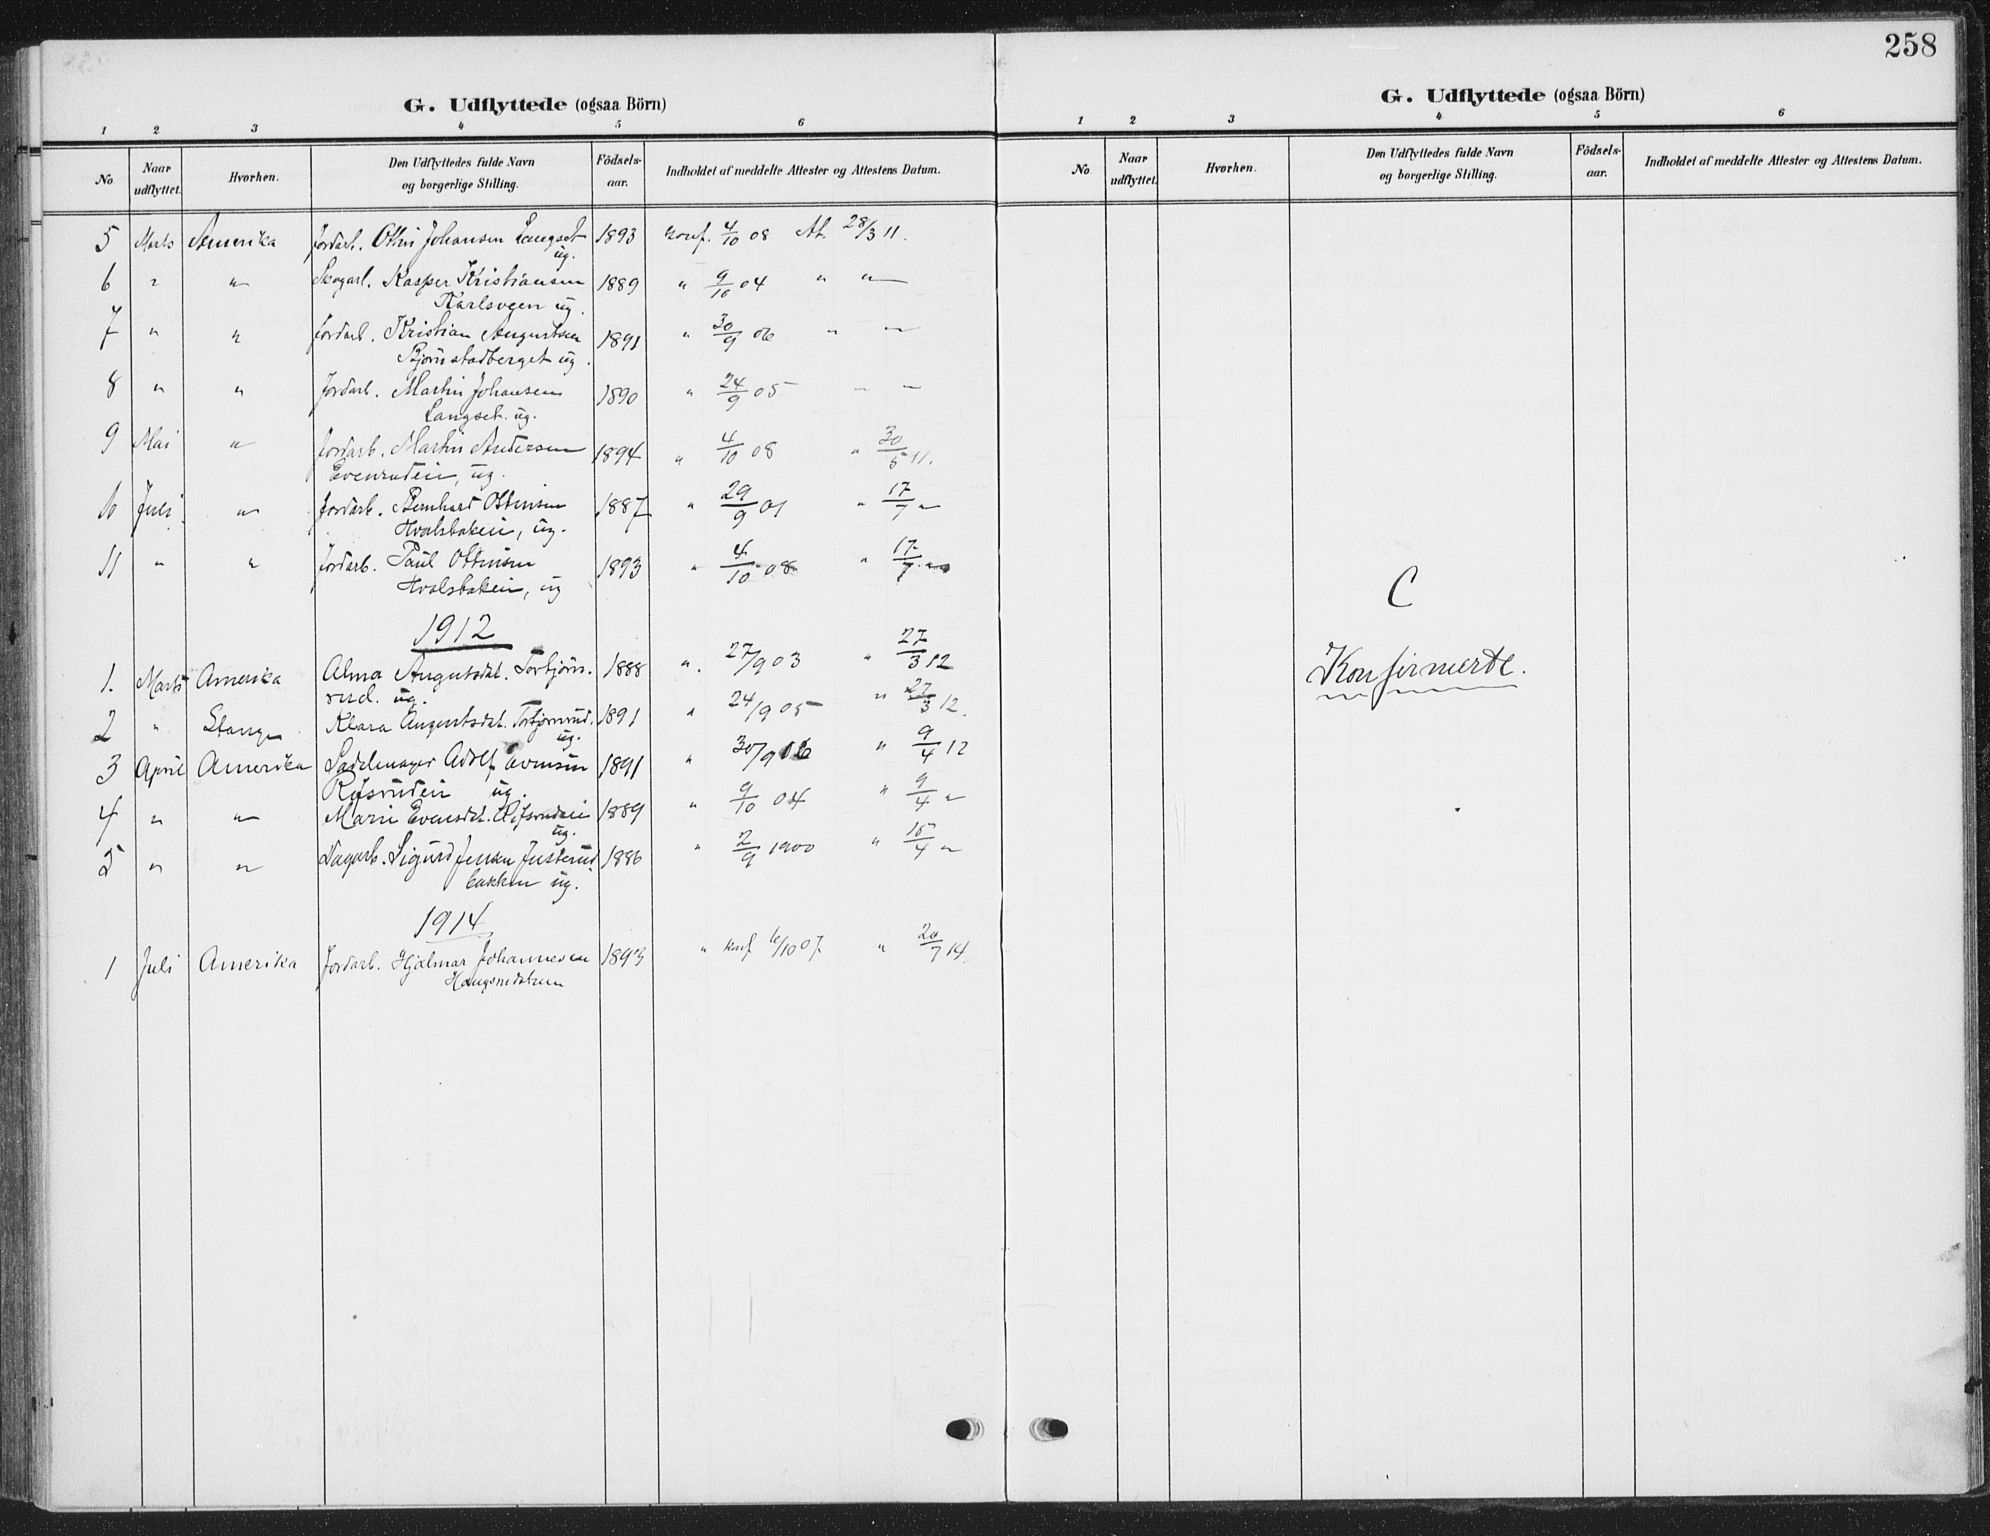 258
G. Udflyttede (ogsaa Börn)
1 2 3 4 5 6
No Naar udflyttet. Hvorhen. Den Udflyttedes fulde Navn og borgerlige Stilling. Födsels-aar. Indholdet af meddelte Attester og Attestens Datum.
5 Marts Amerika Jordarb. Othin Johansen Langset 1893 Konf. 4/10 08 At. 28/3 11.
ug.
6 " " Skogarb. Kasper Kristiansen 1889 " 9/10 04 " "
Karlsveen ug.
7 " " Jordarb. Kristian Augustsen 1891 " 30/9 06 " "
Bjørnstadberget ug.
8 " " Jordarb. Martin Johansen 1890 " 24/9 05 " "
Langset. ug.
9 Mai " Jordarb. Martin Andersen 1894 " 4/10 08 " 30/5 11.
Evenrudeie, ug.
10 Juli " Jordarb. Bernhard Ottinsen 1887 " 29/9 01 " 17/7 "
Hvalsbakeie, ug.
11 " " Jordarb. Paul Ottinsen 1893 " 4/10 08 " 17/7 "
Hvalsbakeie, ug
1912
1. Marts Amerika Alma Augustsdat. Torbjörns- 1888 " 27/9 03 " 27/3 12
rud. ug.
2 " Stange Klara Augustsdat. Torbjørnrud. 1891 " 24/9 05 " 27/3 12.
ug.
3 April Amerika Sadelmager Adolf Evensen 1891 " 30/9 06 " 9/4 12
Rifsrudeie ug.
4 " " Marie Evensdat. Rifsrudeie 1889 " 9/10 04 " 9/4 "
ug.
5 " " Dagarb. Sigurd Jensen Justerud 1886 " 2/9 1900 " 15/4 "
bakken ug.
1914
1 Juli Amerika Jordarb. Hjalmar Johannesen 1893 " konf 6/10 07 " 20/7 14.
G. Udflyttede (ogsaa Börn)
1 2 3 4 5 6
No Naar udflyttet. Hvorhen. Den Udflyttedes fulde Navn og borgerlige Stilling. Födsels-aar. Indholdet af meddelte Attester og Attestens Datum.
C
Konfirmerte.